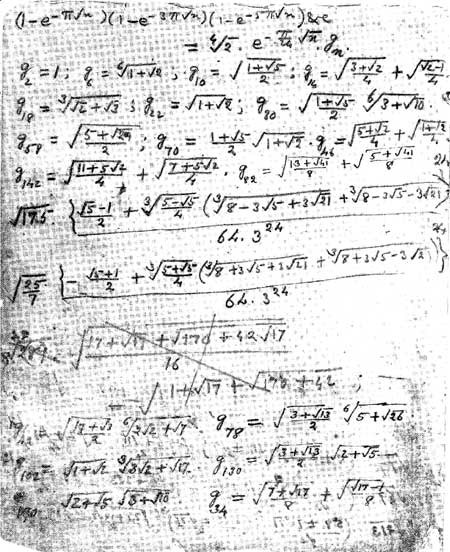 (1-e^{-π√n})(1-e^{-3π√n})(1-e^{-5π√n})&c
= ∜2 . e^{-π/24 √n} g_n
g_2 = 1; g_6 = ⁶√(1+√2); g_10 = √((1+√5)/2); g_16 = √((3+√2)/4) + √((√2-1)/4)
g_18 = ³√(√2+√3); g_22 = √(1+√2); g_30 = √((1+√5)/2) ⁶√(3+√10).
g_58 = √((5+√29)/2); g_70 = (1+√5)/2 √(1+√2). g_46 = √((5+√2)/4) + √((1+√2)/4)
g_142 = √((11+5√2)/4) + √((7+5√2)/4). g_82 = √((13+√41)/8) + √((5+√41)/8)
√175 {(√5-1)/2 + ³√((5-√5)/4) (³√(8-3√5+3√21) + ³√(8-3√5-3√21)
64.3^{24}
√(25/7) {-(√5+1)/2 + ³√((5+√5)/4) (³√(8+3√5+3√21) + ³√(8+3√5-3√21)}
64.3^{24}
√((17+√17+√(170+42√17))/16)
√(11+√17+√(178+42 ;
g_78 = √((3+√13)/2) ⁶√(5+√26)
g_102 = √(1+√2) ³√(3√2+√17). g_130 = √((3+√13)/2) √(2+√5)
√(2+√5) √(3+√10) g_34 = √((7+√17)/8) + √((√17-1)/8)